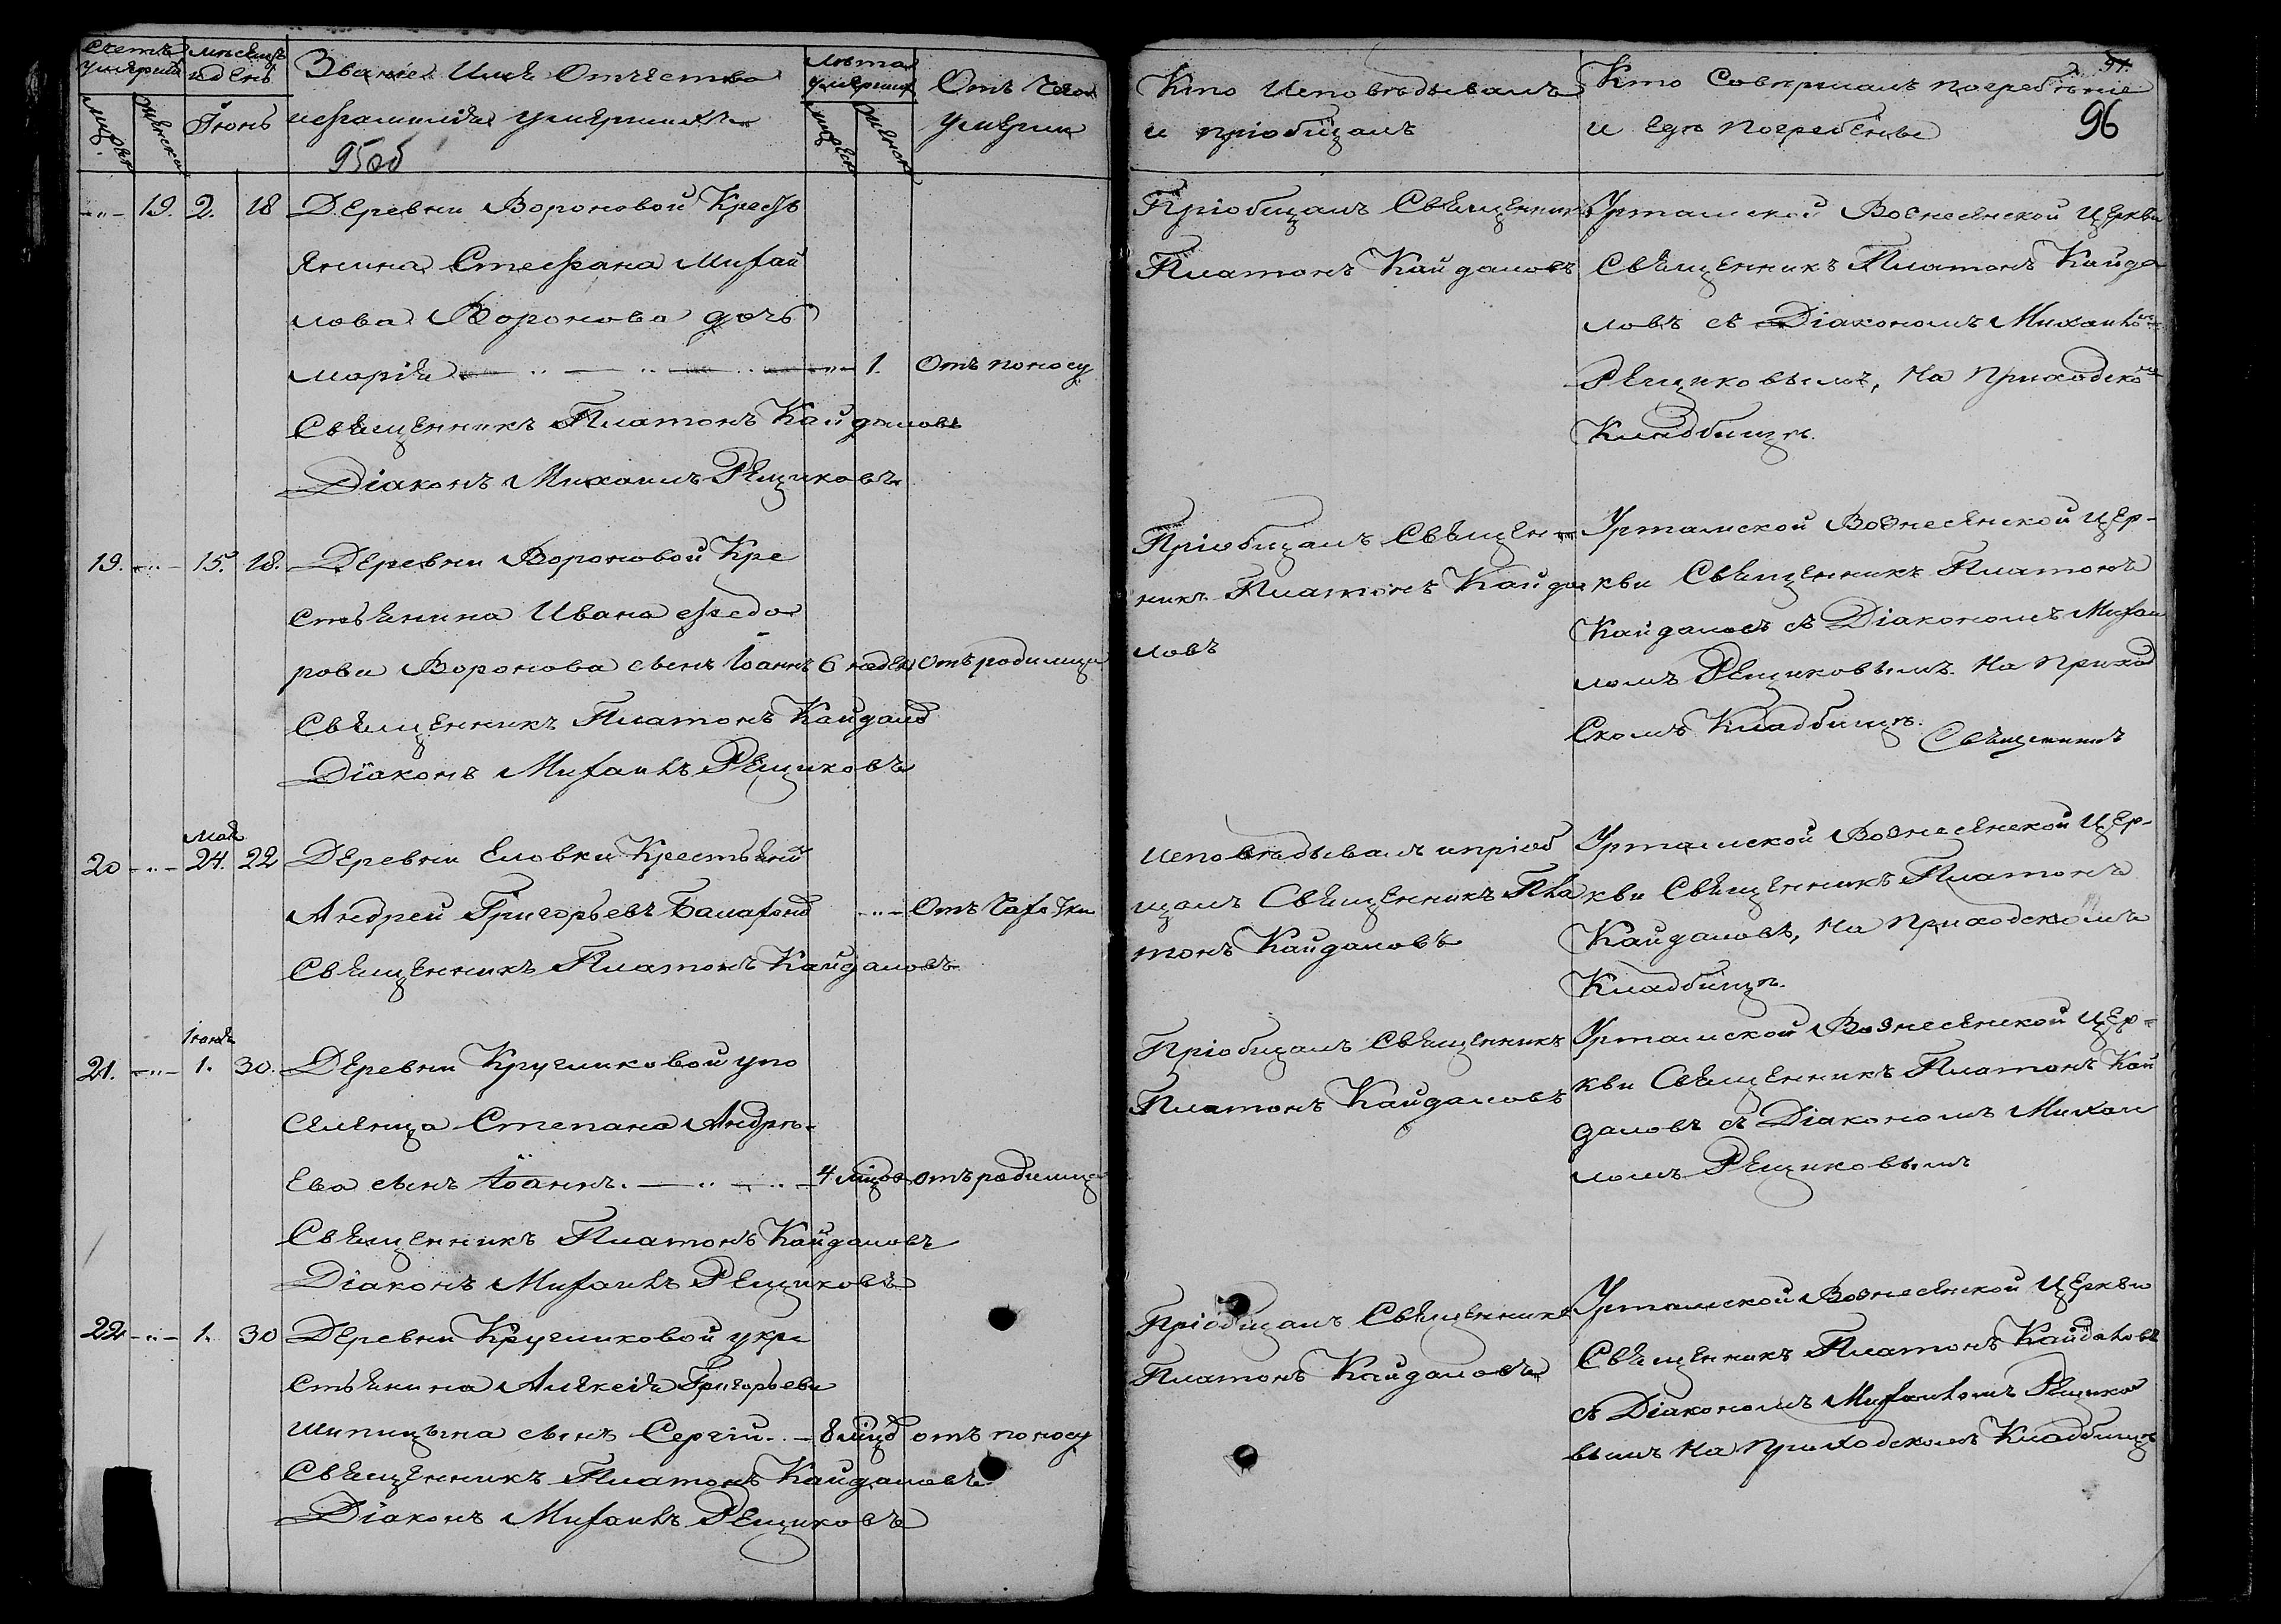 Счетъ умершихъ
Мѣсяцъ и день
Званіе Имя Отчество
и фамилія умершихъ
Лѣта умершихъ
Отъ чего
умерли
мужеск
женски
Іюнь
мужеск
женск
95об
-"- 19. 2. 18 Деревни Вороновой Кресть
янина Стефана Михаи
лова Воронова дочь
Марія 1. Отъ поносу
Священникъ Платонъ Кайдаловъ
Діаконъ Михаилъ Рещиковъ
19. -"- 15. 18. Деревни Вороновой Кре
стьянина Ивана Федо
рова Воронова сынъ Іоаннъ 6 недѣл Отъ родимца
Священникъ Платонъ Кайдалов
Діаконъ Михаилъ Рещиковъ
Мая
20 -"- 24. 22 Деревни Еловки Крестьянин
Андрей Григорьевъ -"- Отъ Чахотки
Священникъ Платонъ Кайдаловъ
Іюня
21. -"- 1. 30. Деревни Кругликовой у по
селенца Степана Андрѣ-
ева сынъ Іоаннъ. 4 Отъ родимца
Священникъ Платонъ Кайдаловъ
Діаконъ Михаилъ Рещиковъ
22 -"- 1. 30 Деревни Кругликовой у кре
стьянина Алексія Григорьева
Шипицына сынъ Сергій 8 отъ поносу
Священникъ Платонъ Кайдаловъ
Діаконъ Михаилъ Рещиковъ
Кто Исповѣдывалъ
и пріобщалъ
Кто Совершалъ погребеніе
и гдѣ погребены
96
Пріобщалъ Священникъ
Платонъ Кайдаловъ
Уртамской Вознесенской Церкви
Священникъ Платонъ Кайда
ловъ съ Діакономъ Михаиломъ
Рещиковымъ, На Приходском
Кладбищѣ.
Пріобщалъ Священ
никъ Платонъ Кайда
ловъ
Уртамской Вознесенской Цер-
кви Священникъ Платонъ
Кайдаловъ съ Діакономъ Михаи
ломъ Рещиковымъ. На Приход
Скомъ Кладбищѣ. Священникъ
Исповѣдывалъ и пріоб
щалъ Священникъ Пла
тонъ Кайдаловъ
Уртамской Вознесенской Цер-
кви Священникъ Платонъ
Кайдаловъ, На Приходскомъ
Кладбищѣ.
Пріобщалъ Священникъ
Платонъ Кайдаловъ
Уртамской Вознесенской Цер-
кви Священникъ Платонъ Кай
даловъ съ Діакономъ Михаи
ломъ Рещиковымъ
Пріобщалъ Священникъ
Платонъ Кайдаловъ
Уртамской Вознесенской Церкви
Священникъ Платонъ Кайдаловъ
съ Діакономъ Михаиломъ Рещико
вымъ На Приходскомъ Кладбищѣ